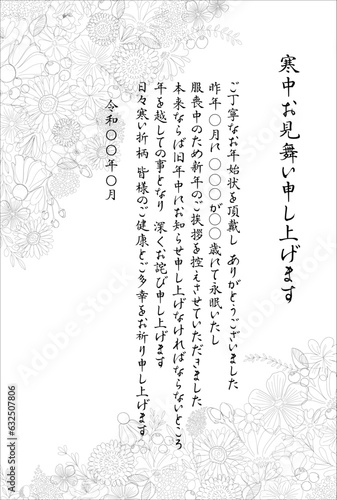 寒中お見舞い申し上げます
ご丁寧なお年始状を頂戴し ありがとうございました
昨年〇月に 〇〇〇が〇〇 歳にて永眠いたし
服喪中のため新年のご挨拶を控えさせていただきました
本来ならば旧年中にお知らせ申し上げなければならないところ
年を越しての事となり 深くお詫び申し上げます
日々寒い折柄 皆様のご健康とご多幸をお祈り申し上げます
令和〇〇年〇月
Adobe Stock | #632507806